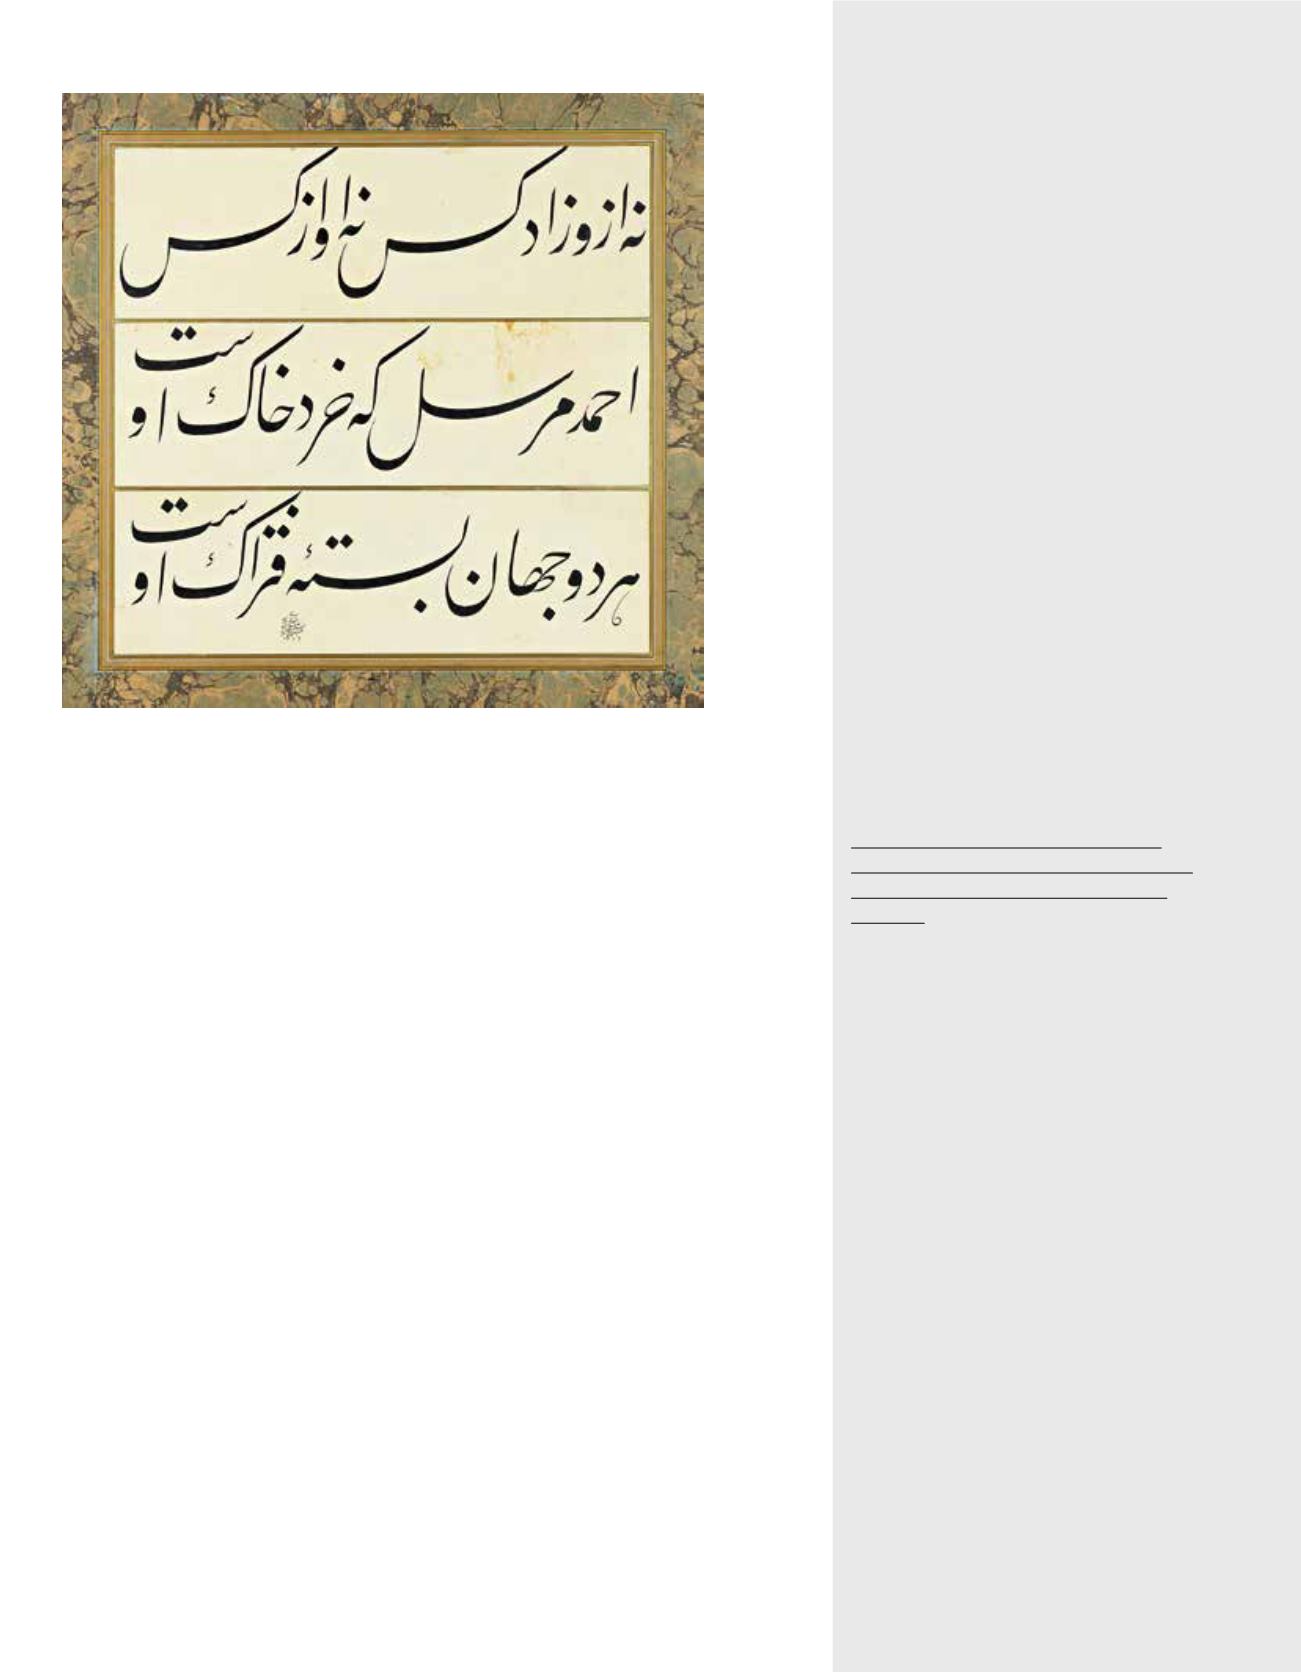 نه ازو زاد کس نه او از کس
احمد مرسل که خرد خاک اوست
هر دو جهان بستهٔ فتراک اوست